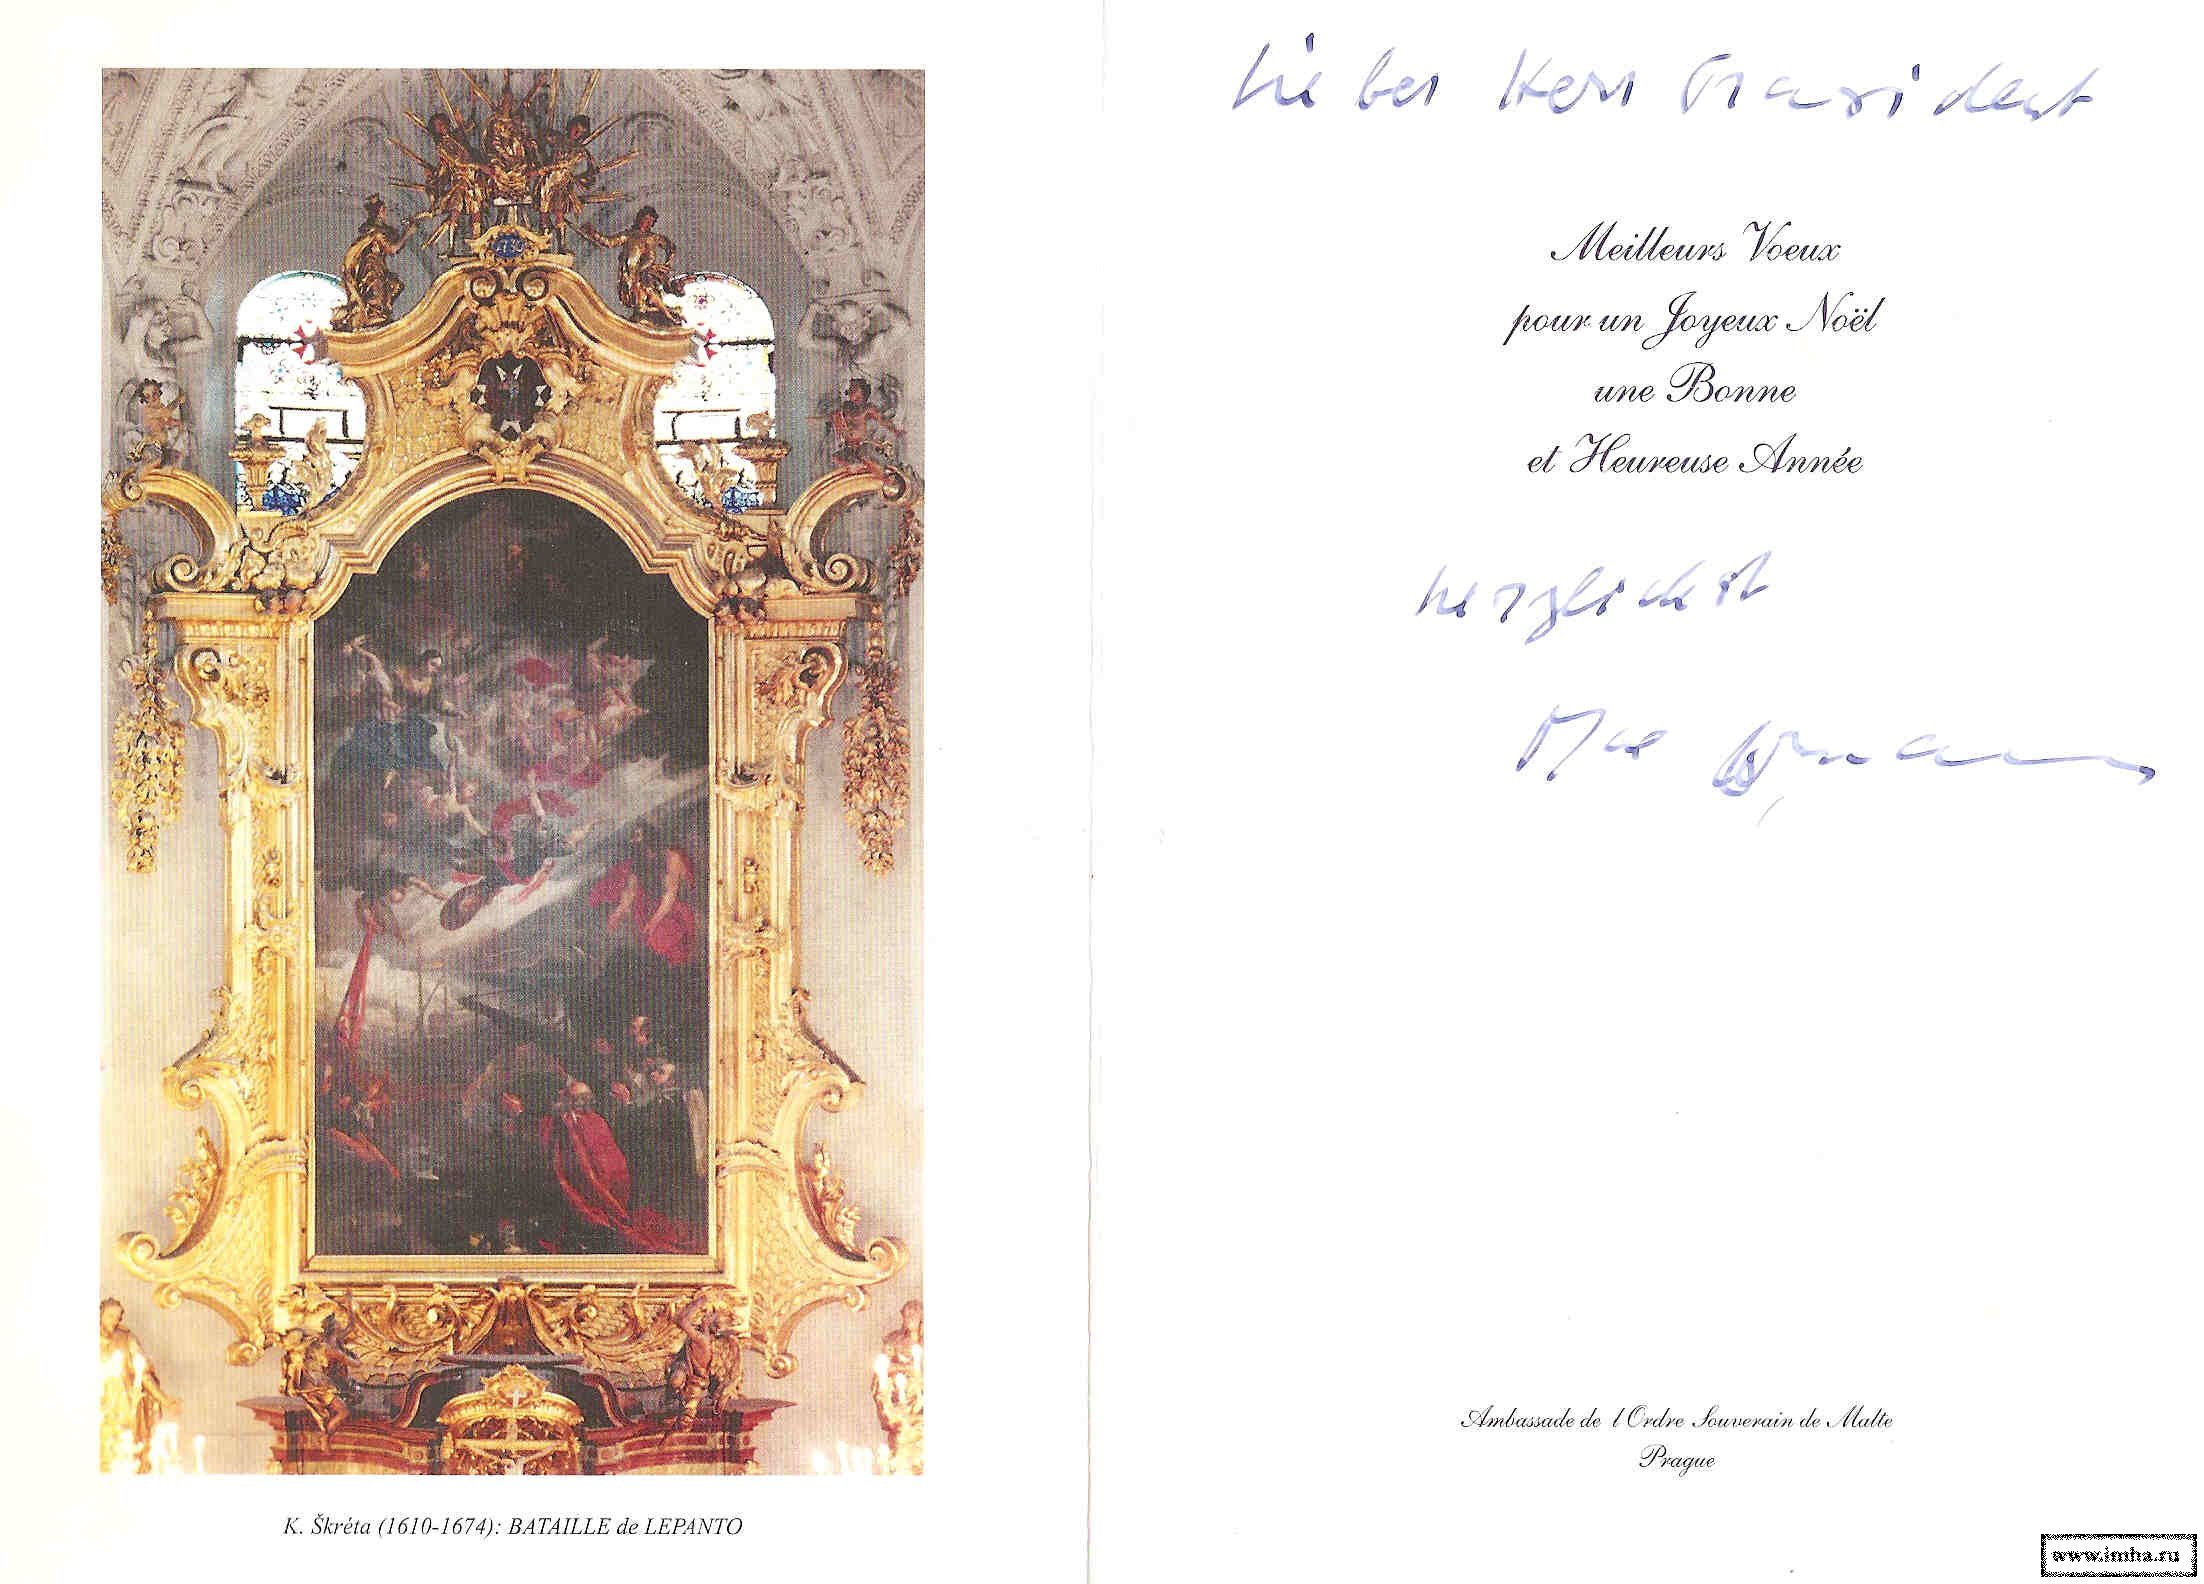 K. Škréta (1610-1674): BATAILLE de LEPANTO
Lieber Herr Präsident
Meilleurs Voeux
pour un Joyeux Noël
une Bonne
et Heureuse Année
herzlichst
Ambassade de l Ordre Souverain de Malte
Prague
www.imha.ru